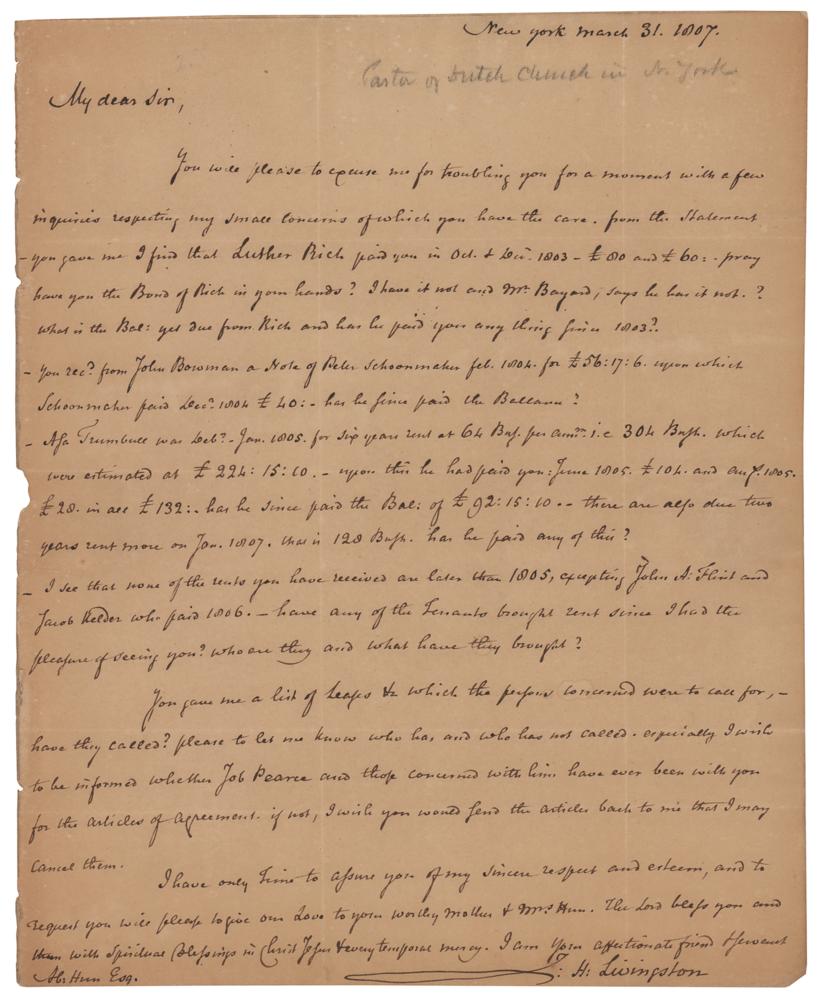 New york march 31. 1807.
Pastor of Dutch Church in N. York
My dear Sir,
You will please to excuse me for troubling you for a moment with a few
inquiries respecting my small concerns of which you have the care. from the Statement
- you gave me I find that Luther Rich paid you in Oct. & Decr. 1803 - £80 and £60: - pray
have you the Bond of Rich in your hands? I have it not and Mr. Bayard, says he has it not. ?
what is the Bal: yet due from Rich and has he paid you any thing since 1803?
- You recd. from John Bowman a Note of Peter Schoonmaker feb. 1804. for £56:17:6. upon which
Schoonmaker paid Decr. 1804 £40: - has he since paid the Ballance ?
- Asa Trumbull was Debr. - Jan. 1805. for six years rent at 64 Bus. per annm. i.e 304 Bush. which
were estimated at £224:15:10. - upon this he had paid you: June 1805. £104. and augt. 1805.
£28. in all £132:. has he since paid the Bal: of £92:15:10. - there are also due two
years rent more on Jan. 1807. that is 128 Bush. has he paid any of this ?
- I see that none of the rents you have received are later than 1805, excepting John A: Flint and
Jacob Kelder who paid 1806. - have any of the Tenants brought rent since I had the
pleasure of seeing you? who are they and what have they brought ?
You gave me a list of Leases &c which the persons concerned were to call for, -
have they called? please to let me know who has, and who has not called. especially I wish
to be informed whether Job Pearce and those concerned with him have ever been with you
for the articles of Agreement. if not, I wish you would send the articles back to me that I may
cancel them.
I have only time to assure you of my sincere respect and esteem, and to
request you will please to give our Love to your worthy mother & Mrs Hun. The Lord bless you and
them with Spiritual Blessings in Christ Jesus & every temporal mercy. I am your affectionate friend & servant
Ab: Hun Esq.
J: H: Livingston